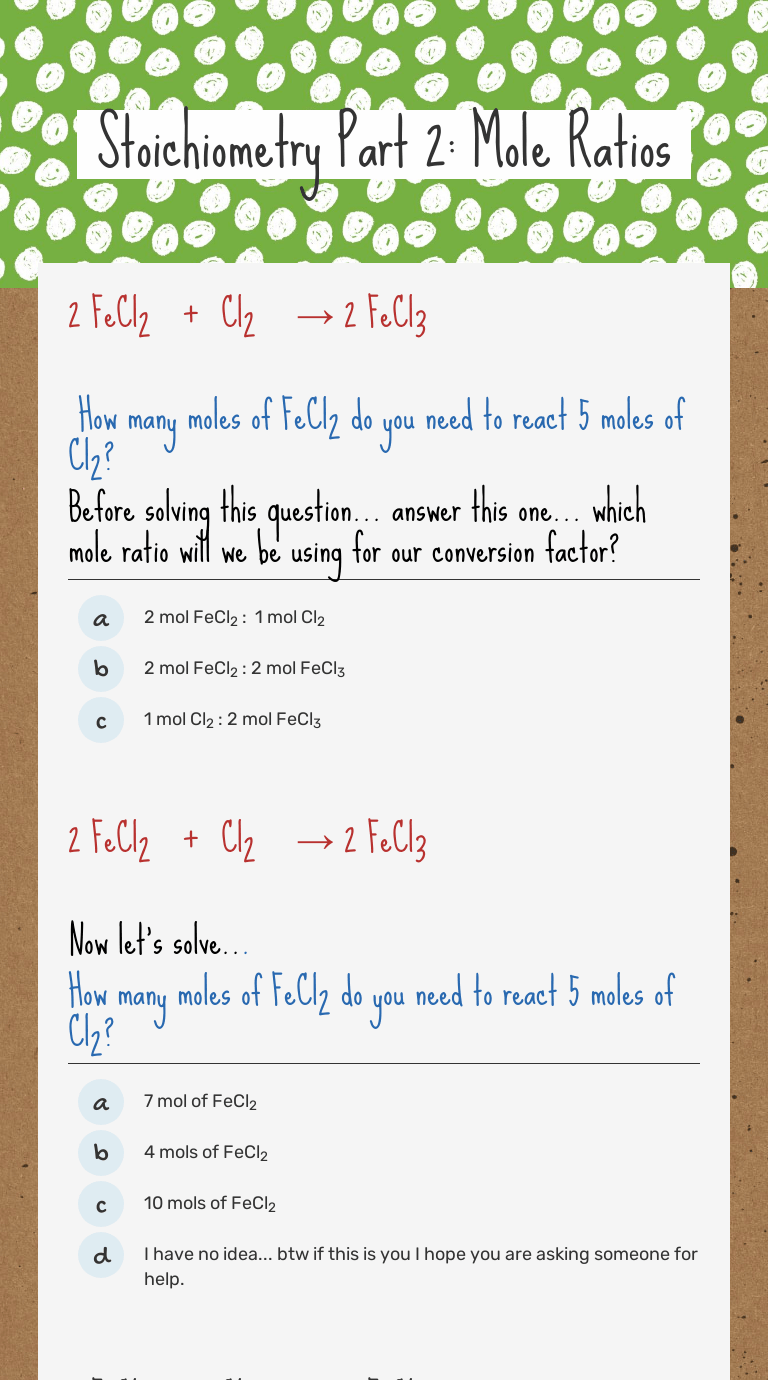 Stoichiometry Part 2: Mole Ratios
2 FeCl₂ + Cl₂ ⟶ 2 FeCl₃
How many moles of FeCl₂ do you need to react 5 moles of
Cl₂?
Before solving this question... answer this one... which
mole ratio will we be using for our conversion factor?
a 2 mol FeCl₂ : 1 mol Cl₂
b 2 mol FeCl₂ : 2 mol FeCl₃
c 1 mol Cl₂ : 2 mol FeCl₃
2 FeCl₂ + Cl₂ ⟶ 2 FeCl₃
Now let's solve...
How many moles of FeCl₂ do you need to react 5 moles of
Cl₂?
a 7 mol of FeCl₂
b 4 mols of FeCl₂
c 10 mols of FeCl₂
d I have no idea... btw if this is you I hope you are asking someone for
help.